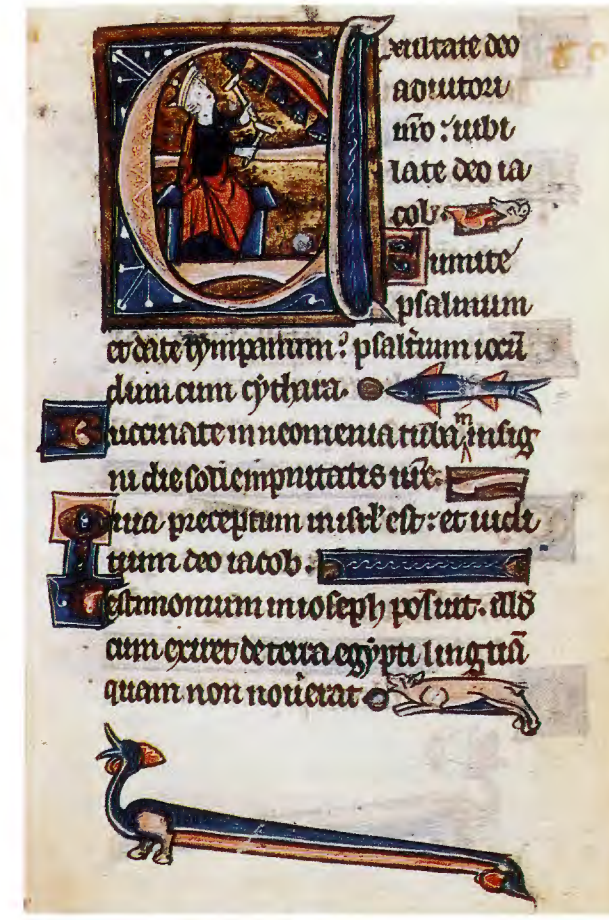 Exultate deo
adiutori
nr̄o : iubi
late deo ia
cob.
Sumite
psalmum
et date tympanum : psalt̄ium iocū
dum cum cythara.
Buccinate in neomenia tuba in insig
ni die sollempnitatis ur̄e.
Quia preceptum in isrl' est : et iudi
tium deo iacob.
Testimonium in ioseph posuit. illd
cum exiret de terra egypti linguā
quam non nouerat